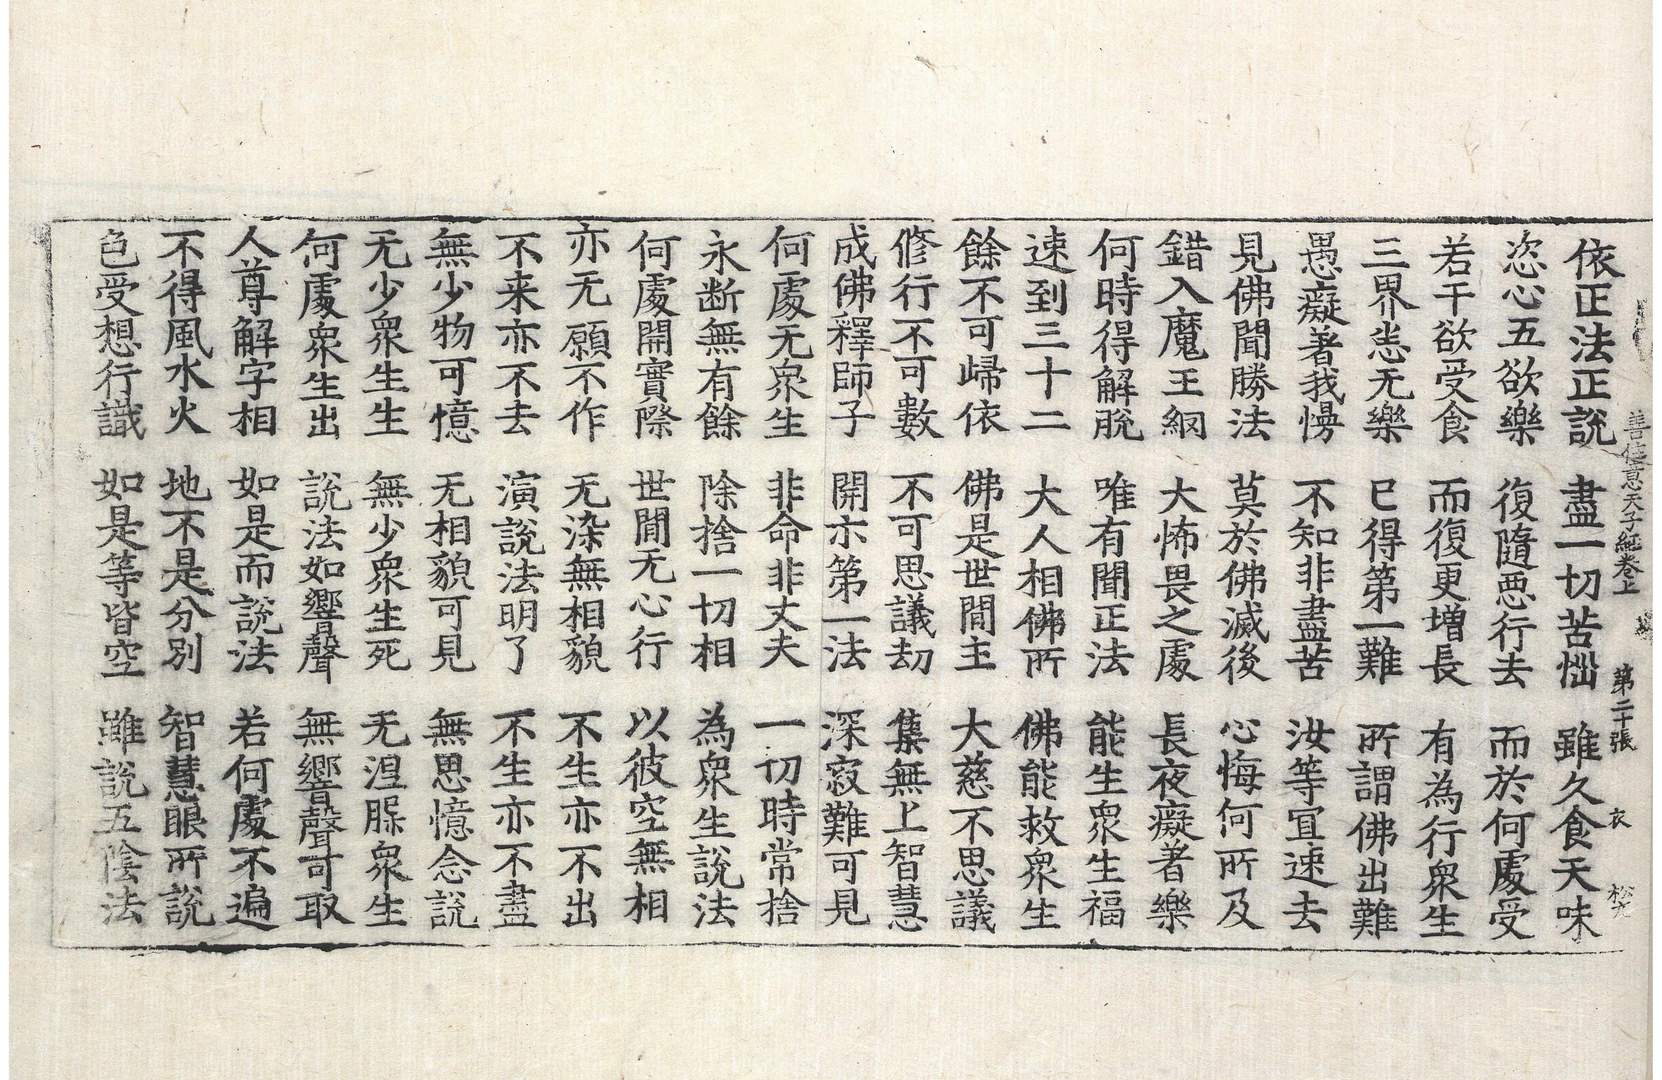 善住意天子経卷上 第二十張 衣
依正法正說 盡一切苦惱 雖久食天味
恣心五欲樂 復隨惡行去 而於何處受
若干欲受食 而復更增長 有為行眾生
三界恙无樂 已得第一難 所謂佛出難
愚癡著我慢 不知非盡苦 汝等冝速去
見佛聞勝法 莫於佛滅後 心悔何所及
錯入魔王網 大怖畏之處 長夜癡著樂
何時得解脫 唯有聞正法 能生眾生福
速到三十二 大人相佛所 佛能救眾生
餘不可歸依 佛是世間主 大慈不思議
修行不可數 不可思議劫 集無上智慧
成佛釋師子 開示第一法 深寂難可見
何處无眾生 非命非丈夫 一切時常捨
永断無有餘 除捨一切相 為眾生說法
何處開實際 世間无心行 以彼空無相
亦无願不作 无染無相貌 不生亦不出
不来亦不去 演說法明了 不生亦不盡
無少物可憶 无相貌可見 無思憶念說
无少眾生生 無少眾生死 无涅槃眾生
何處眾生出 說法如響聲 無響聲可取
人尊解字相 如是而說法 若何處不遍
不得風水火 地不是分別 智慧眼所說
色受想行識 如是等皆空 雖說五陰法